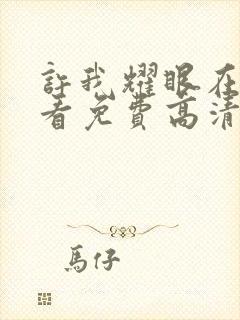 許我耀眼在
看免費高清
馬仔